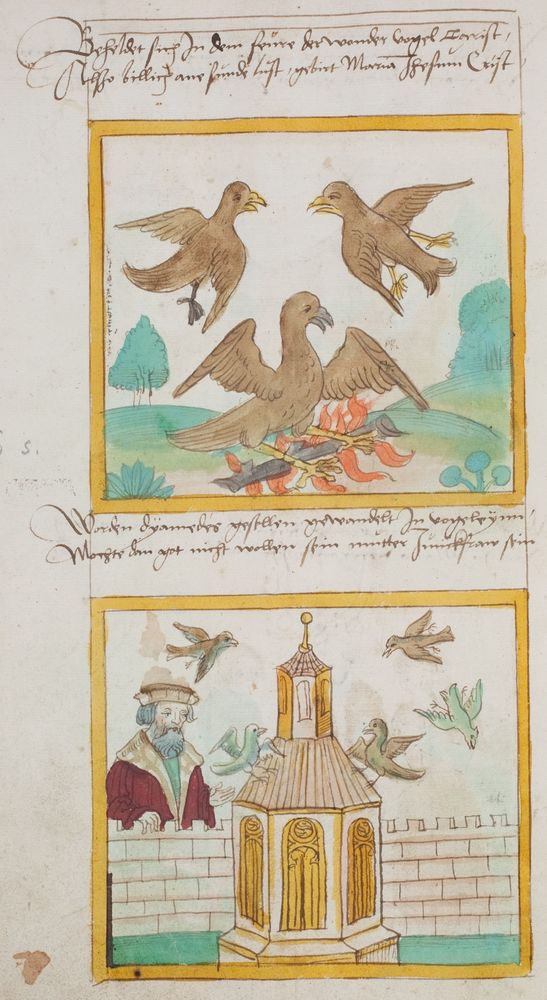 Beheldet sich In dem feure der wonder vogel Carist,
Also billich ane sunde lust, gebirt Maria Jhesum Crist
Worden dyamedes gesellen gewandelt In vogeleynn
Mochte dan got nicht wollen sein mutter Junckfraw sein
s.